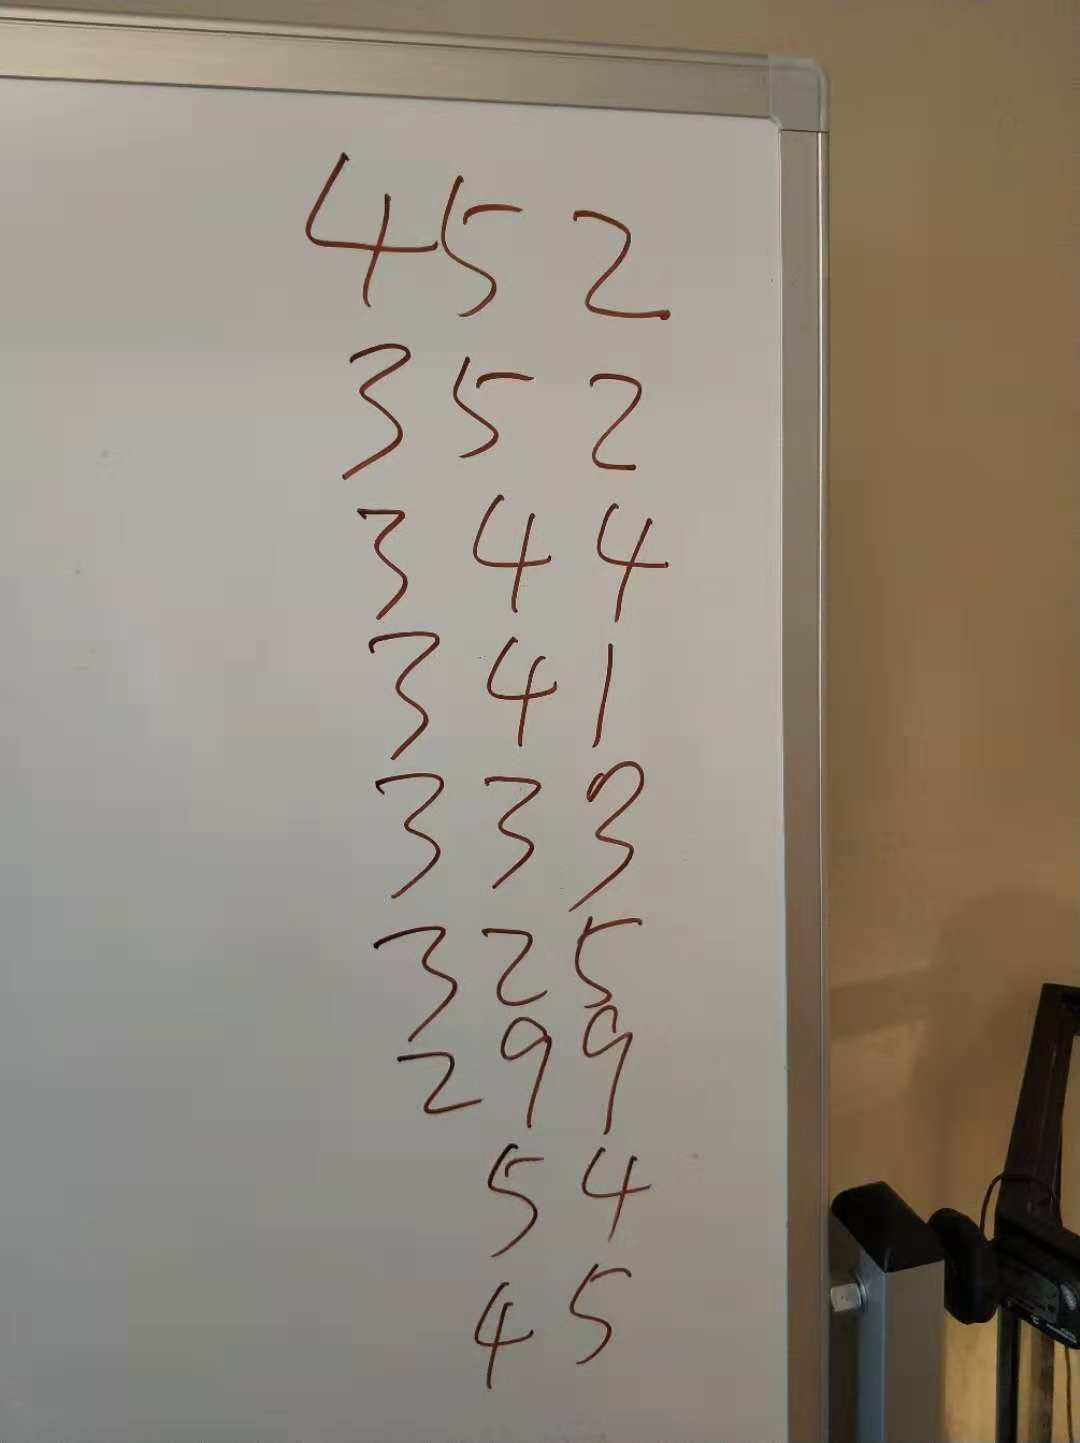 452
352
344
341
333
325
299
54
45